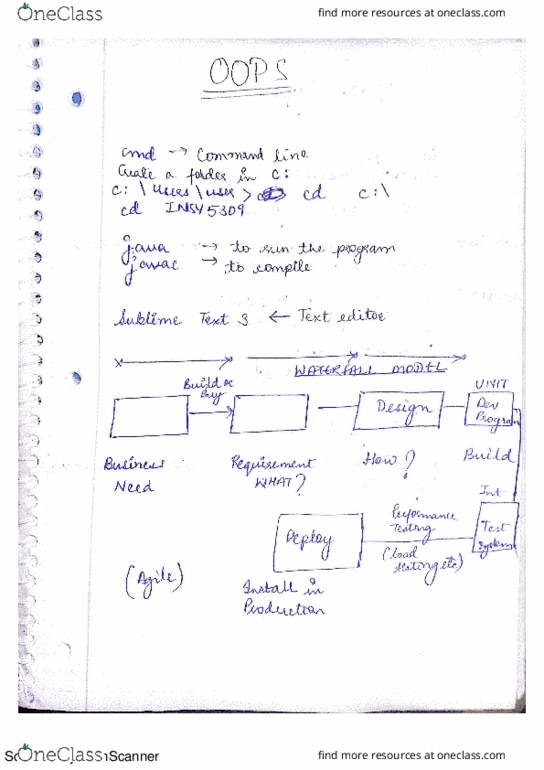 OneClass
find more resources at oneclass.com
OOPS
cmd → Command line
Create a folder in C:
C: \ users \ user > cd C:\
cd INSY5309
java → to run the program
javac → to compile
Sublime Text 3 ← Text editor
WATERFALL MODEL
Build or
Buy
UNIT
Design
Dev
Program
Business
Need
Requirement
WHAT?
How?
Build
Int
Performance
Testing
Test
System
Deploy
(load
testing etc)
(Agile)
Install in
Production
OneClass
Scanner
find more resources at oneclass.com